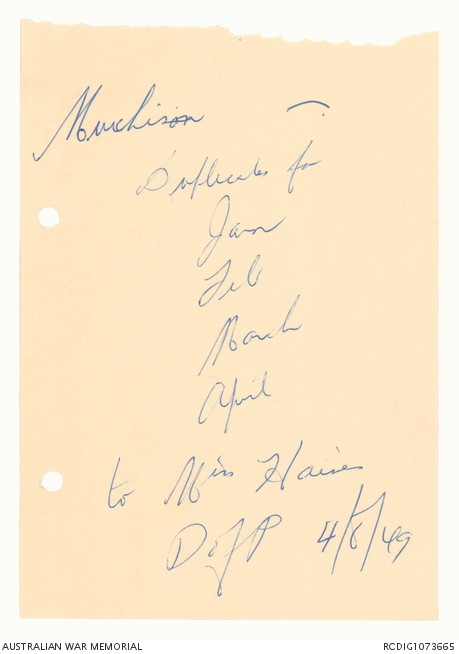 Murchison
Duplicates for
Jan
Feb
March
April
to Miss Haines
D of P 4/8/49
AUSTRALIAN WAR MEMORIAL
RCDIG1073665